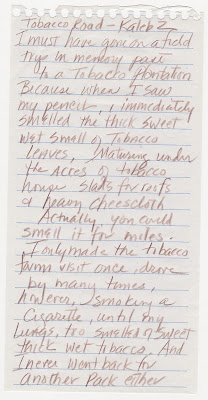 Tobacco Road - Kaleb Z
I must have gone on a field
trip in memory past
to a Tobacco Plantation
Because when I saw
my pencil, I immediately
smelled the thick sweet
wet smell of Tobacco
leaves, Maturing under
the acres of tobacco
house slads for roofs
& heavy cheesecloth
Actually, you could
smell it for miles.
I only made the tobacco
farm visit once, drove
by many times,
however, smoking a
Cigarette, until my
lungs, too smelled of sweet
thick wet tobacco, And
I never went back for
another Pack either